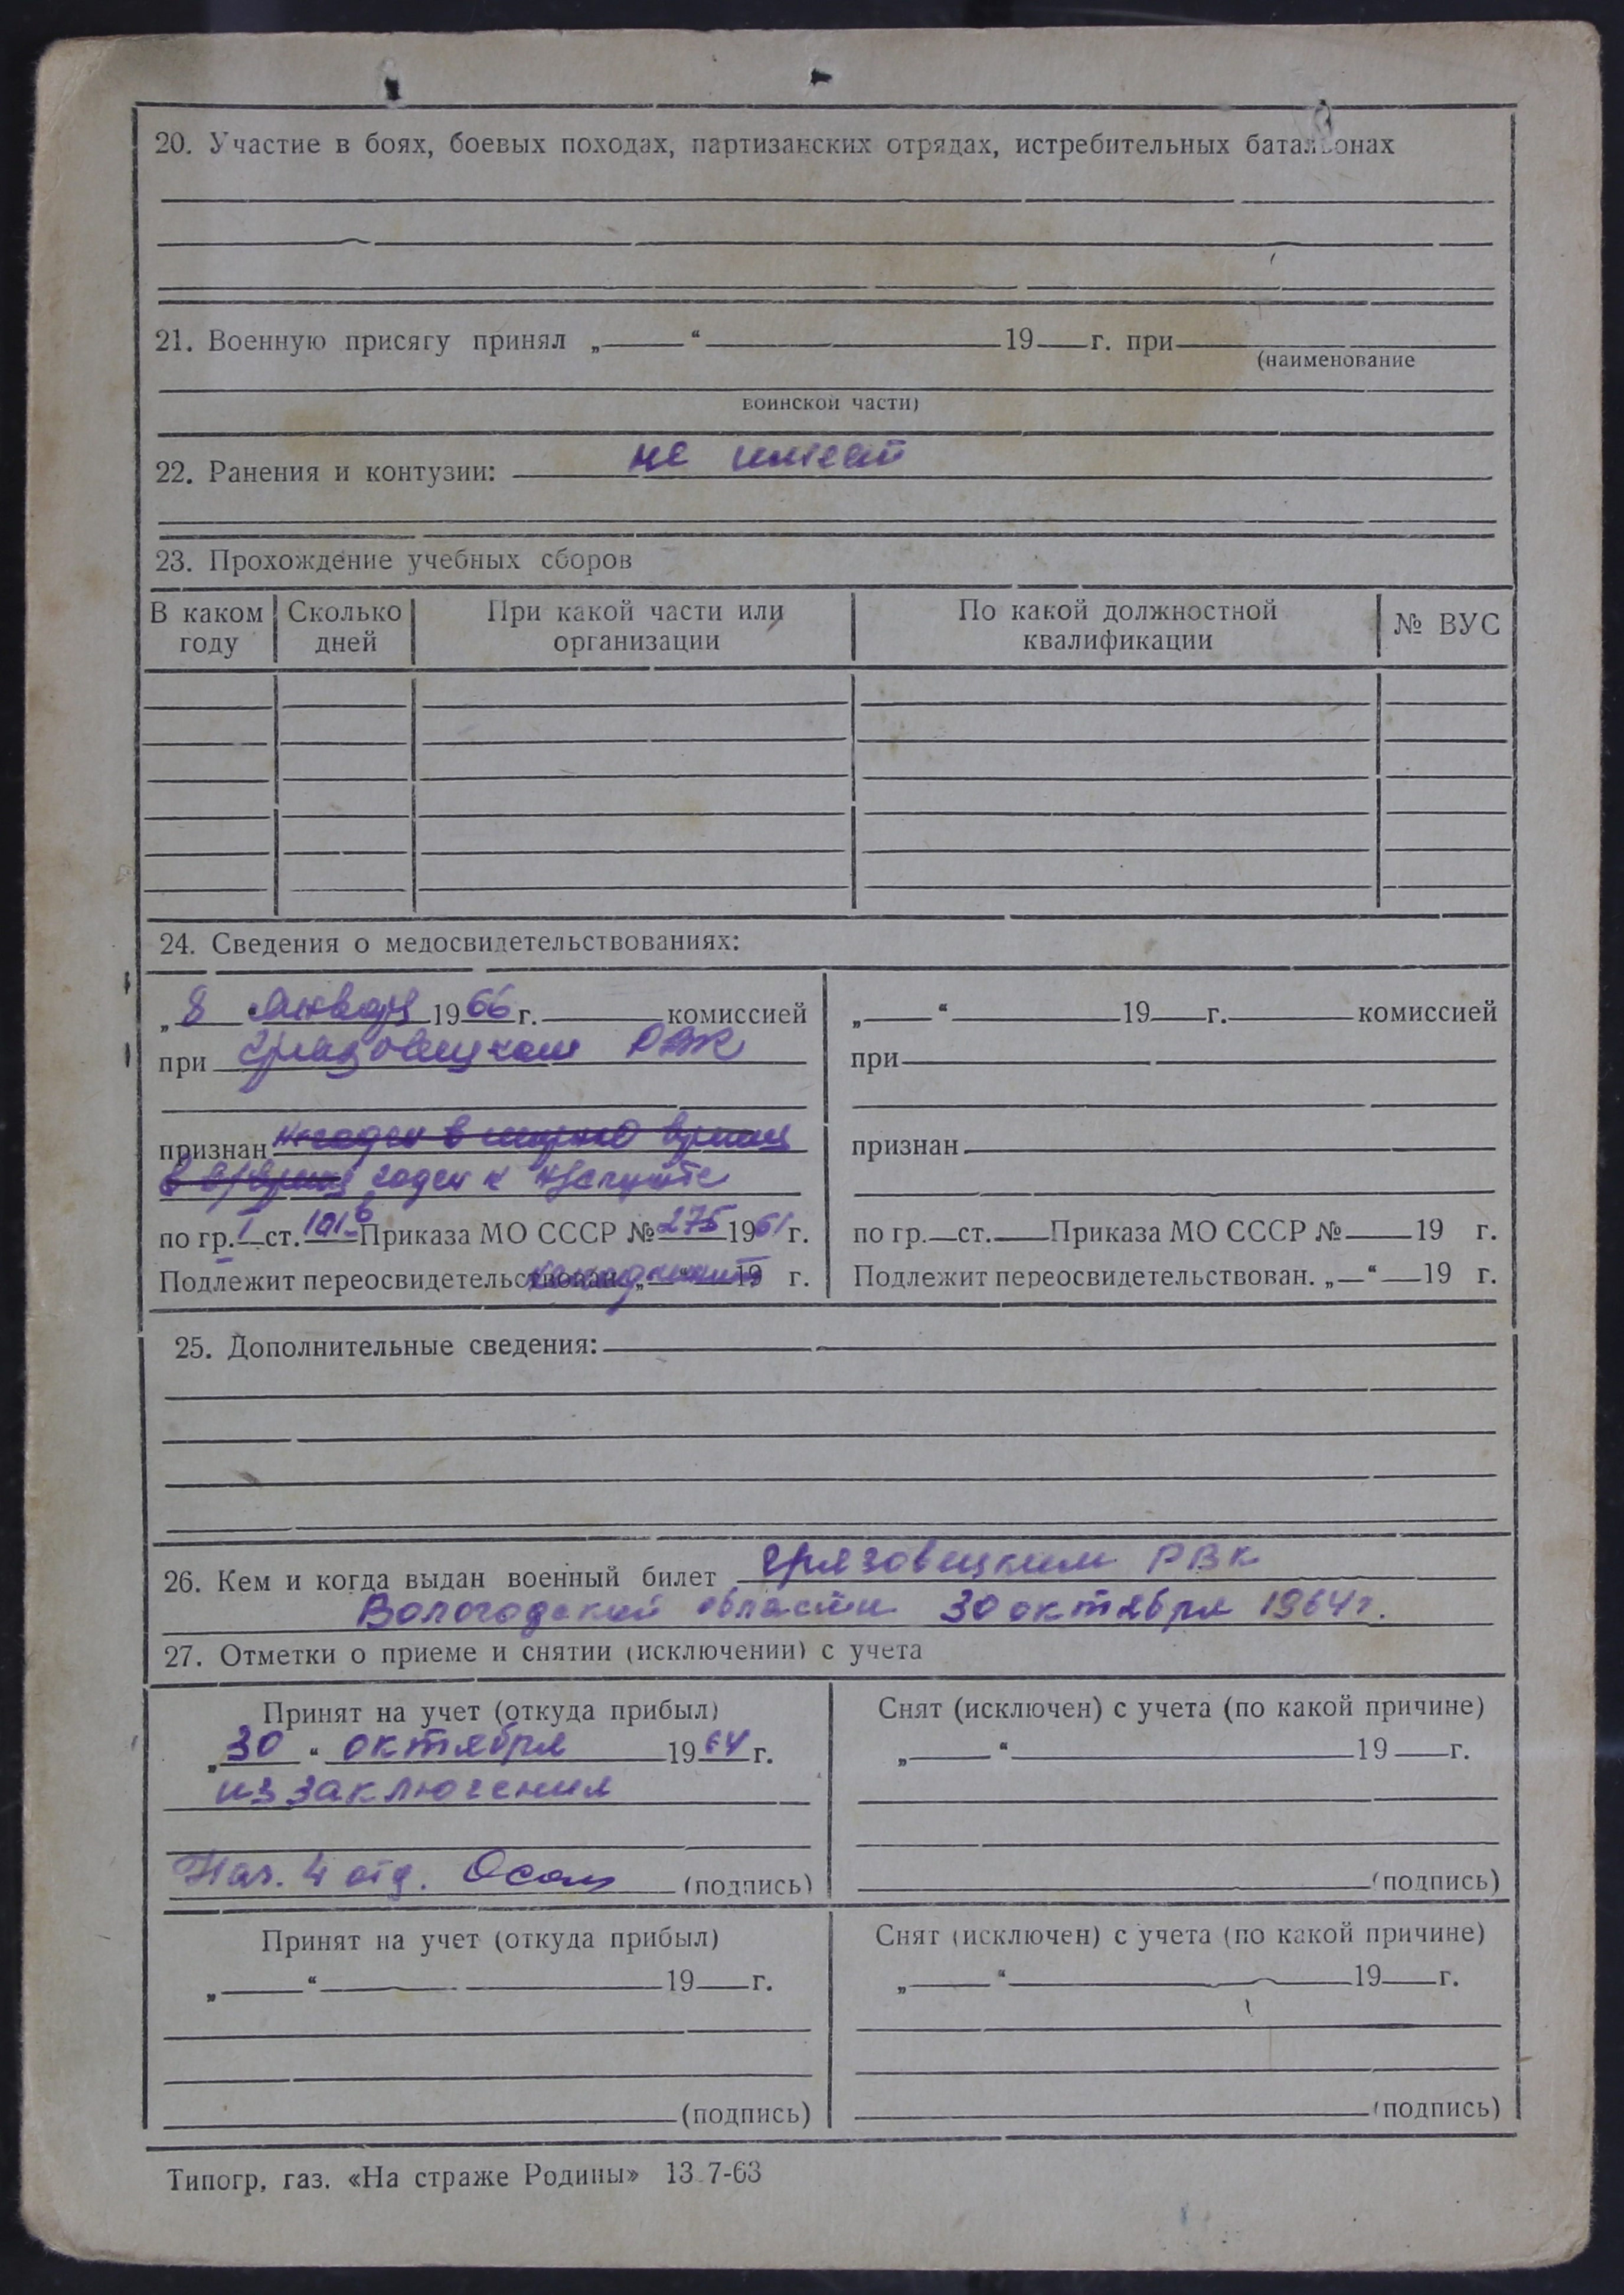 20. Участие в боях, боевых походах, партизанских отрядах, истребительных батальонах
21. Военную присягу принял „ “ 19 г. при
(наименование
воинской части)
22. Ранения и контузии: не имеет
23. Прохождение учебных сборов
В каком году Сколько дней При какой части или организации По какой должностной квалификации № ВУС
24. Сведения о медосвидетельствованиях:
„8 Января 1966 г. комиссией
при Грязовецком РВК
признан негоден в мирное время
в в/время годен к н/службе
по гр. I ст. 101б Приказа МО СССР № 275 1961 г.
Подлежит переосвидетельствован. „ “ 19 г.
„ “ 19 г. комиссией
при
признан
по гр. ст. Приказа МО СССР № 19 г.
Подлежит переосвидетельствован. „ “ 19 г.
25. Дополнительные сведения:
26. Кем и когда выдан военный билет Грязовецким РВК
Вологодской области 30 октября 1964 г.
27. Отметки о приеме и снятии (исключении) с учета
Принят на учет (откуда прибыл)
„30 “ октября 1964 г.
из заключения
Нач. 4 отд. (подпись)
Снят (исключен) с учета (по какой причине)
„ “ 19 г.
(подпись)
Принят на учет (откуда прибыл)
„ “ 19 г.
(подпись)
Снят (исключен) с учета (по какой причине)
„ “ 19 г.
(подпись)
Типогр, газ. «На страже Родины» 13.7-63